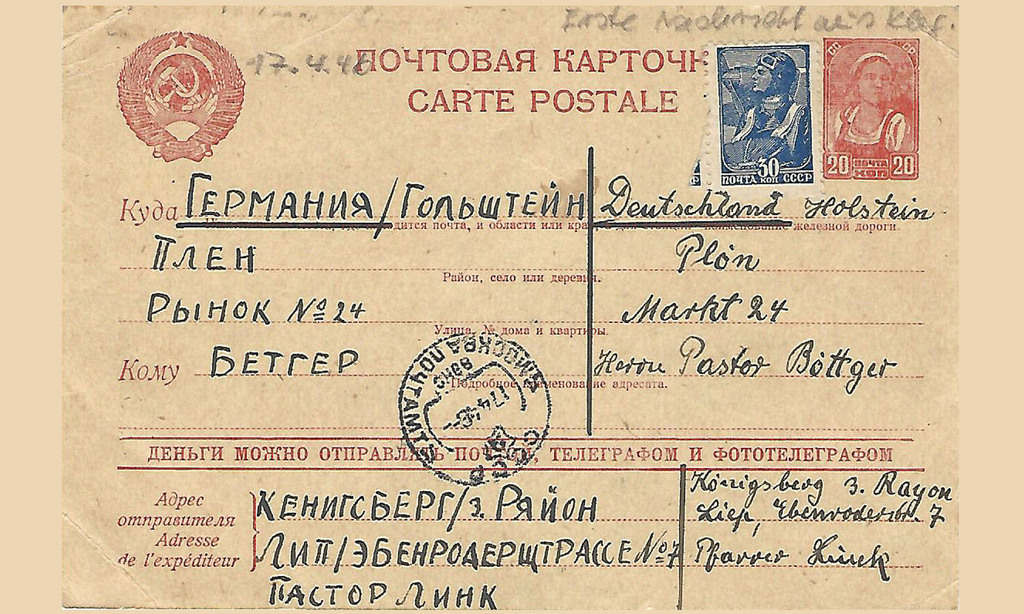 Erste Nachricht aus Kbg.
17.4.46
ПОЧТОВАЯ КАРТОЧК
CARTE POSTALE
30
ПОЧТА КОП СССР
СС СР
20 ПОЧТА КОП 20
Куда ГЕРМАНИЯ/ГОЛЬШТЕЙН Deutschland Holstein
дится почта, и области или кра наименование железной дороги.
ПЛЕН Plön
Район, село или деревня.
РЫНОК № 24 Markt 24
Улица, № дома и квартиры.
Кому БЕТГЕР Herrn Pastor Böttger
Подробное наименование адресата.
МОСКВА ПОЧТАМТ
17 4 46
СССР
ДЕНЬГИ МОЖНО ОТПРАВЛЯТЬ ПОЧТОЙ, ТЕЛЕГРАФОМ И ФОТОТЕЛЕГРАФОМ
Адрес отправителя
Adresse de l'expéditeur
КЕНИГСБЕРГ/3. РЯЙОН
ЛИП/ЭБЕНРОДЕРЩТРАССЕ №7
ПАСТОР ЛИНК
Königsberg 3. Rayon
Liep, Ebenroderstr. 7
Pfarrer Linck